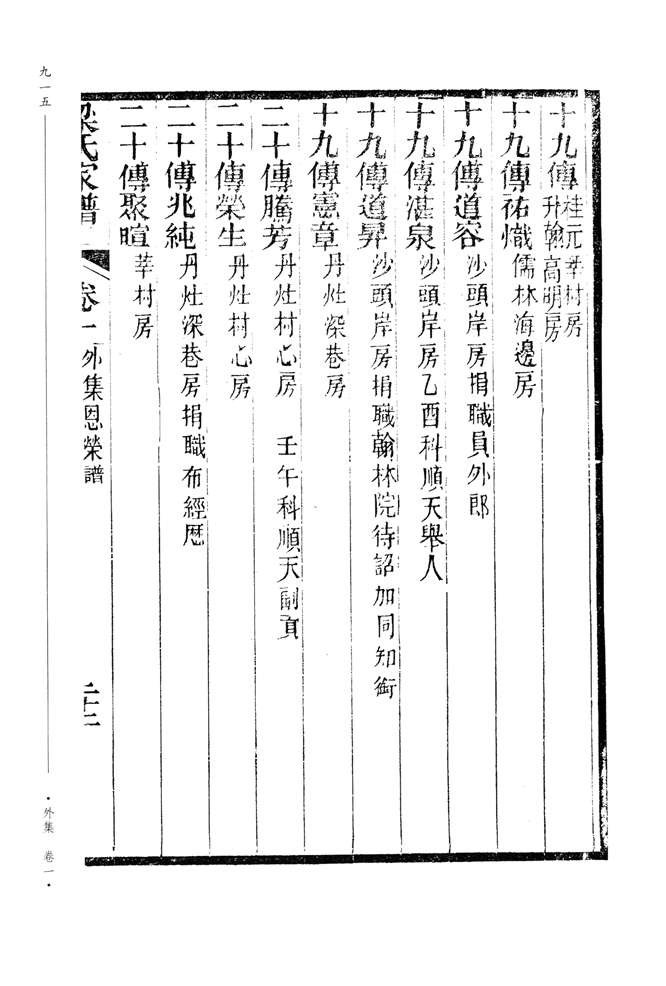 十九傳桂元莘村房
升翰高明房
十九傳祐熾儒林海邊房
十九傳道容沙頭岸房捐職員外郎
十九傳湛泉沙頭岸房乙酉科順天舉人
十九傳道昇沙頭岸房捐職翰林院待詔加同知銜
十九傳憲章丹灶深巷房
二十傳騰芳丹灶村心房 壬午科順天副貢
二十傳榮生丹灶村心房
二十傳兆純丹灶深巷房捐職布經歷
二十傳聚暄莘村房
梁氏家譜 卷一外集恩榮譜 二十二
九一五
·外集 卷一·